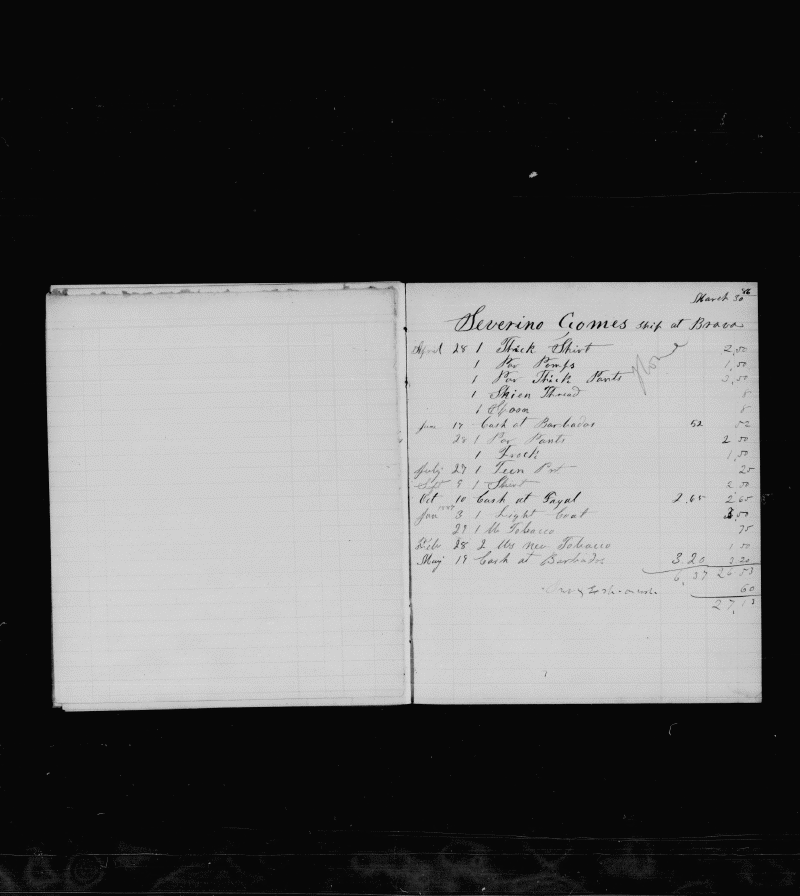 March 30
Severino Gomes ship at Brava
April 28 1 Thick Shirt 2,50
1 Par Pomps 1,50
1 Par Thick Pants 2,50
1 Skien Thread 8
1 Spoon 8
Jun 17 Cash at Barbados 52 52
28 1 Par Pants 2 50
1 Frock 1,50
July 27 1 Teen Pot 25
Sept 9 1 Shirt 2 50
Oct 10 Cash at Fayal 2,65 2 65
Jan 3 1 Light Coat 3,50
29 1 lb Tobacco 75
Feb 28 2 lbs Tobacco 1 50
May 19 Cash at Barbados 3 20 3 20
6,37 26 53
60
27,13